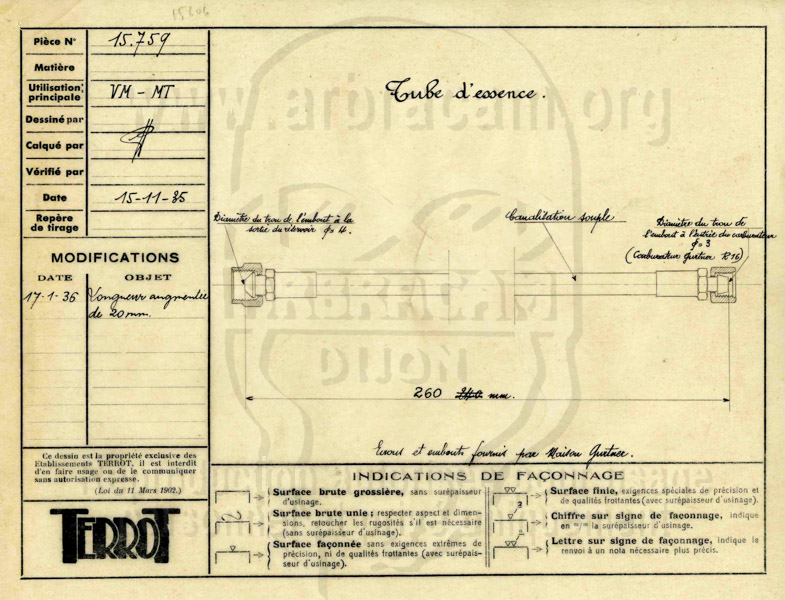 15606
Pièce N° 15.759
Matière
Utilisation principale VM - MT
Dessiné par
Calqué par
Vérifié par
Date 15-11-35
Repère de tirage
MODIFICATIONS
DATE OBJET
17-1-36 Longueur augmentée
de 20 mm.
Ce dessin est la propriété exclusive des
Etablissements TERROT, il est interdit
d'en faire usage ou de le communiquer
sans autorisation expresse.
(Loi du 11 Mars 1902.)
TERROT
Tube d'essence.
www.arbracam.org
Diamètre du trou de l'embout à la
sortie du réservoir ϕ = 4.
Canalisation souple
Diamètre du trou de
l'embout à l'entrée du carburateur
ϕ = 3
(Carburateur Gurtner R16)
ARBRACAM
DIJON
260 240 mm.
Ecrous et embouts fournis par Maison Gurtner.
INDICATIONS DE FAÇONNAGE
Surface brute grossière, sans surépaisseur
d'usinage.
Surface brute unie; respecter aspect et dimen-
sions, retoucher les rugosités s'il est nécessaire
(sans surépaisseur d'usinage).
Surface façonnée sans exigences extrêmes de
précision, ni de qualités frottantes (avec surépais-
seur d'usinage).
Surface finie, exigences spéciales de précision et
de qualités frottantes (avec surépaisseur d'usinage).
3
Chiffre sur signe de façonnage, indique
en m/m la surépaisseur d'usinage.
Lettre sur signe de façonnage, indique le
renvoi à un nota nécessaire plus précis.